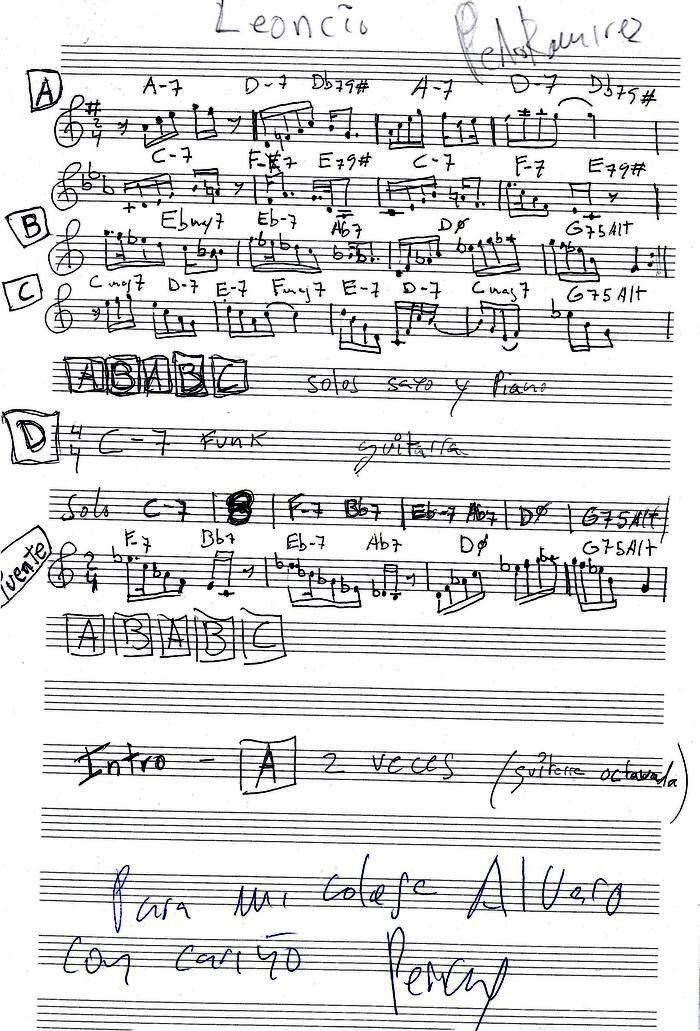 Leoncio
Pedro Ramirez
A
A-7 D-7 Db79# A-7 D-7 Db79#
2 4
C-7 F-7 E79# C-7 F-7 E79#
B
Ebmaj7 Eb-7 Ab7 DØ G75Alt
C
Cmaj7 D-7 E-7 Fmaj7 E-7 D-7 Cmaj7 G75Alt
A B A B C solos saxo y Piano
D 4 4 C-7 Funk guitarra
Solo C-7 F-7 Bb7 Eb-7 Ab7 DØ G75Alt
F-7 Bb7 Eb-7 Ab7 DØ G75Alt
Puente 2 4
A B A B C
Intro - A 2 veces (guitarra octavada)
Para mi colega Alvaro
con cariño